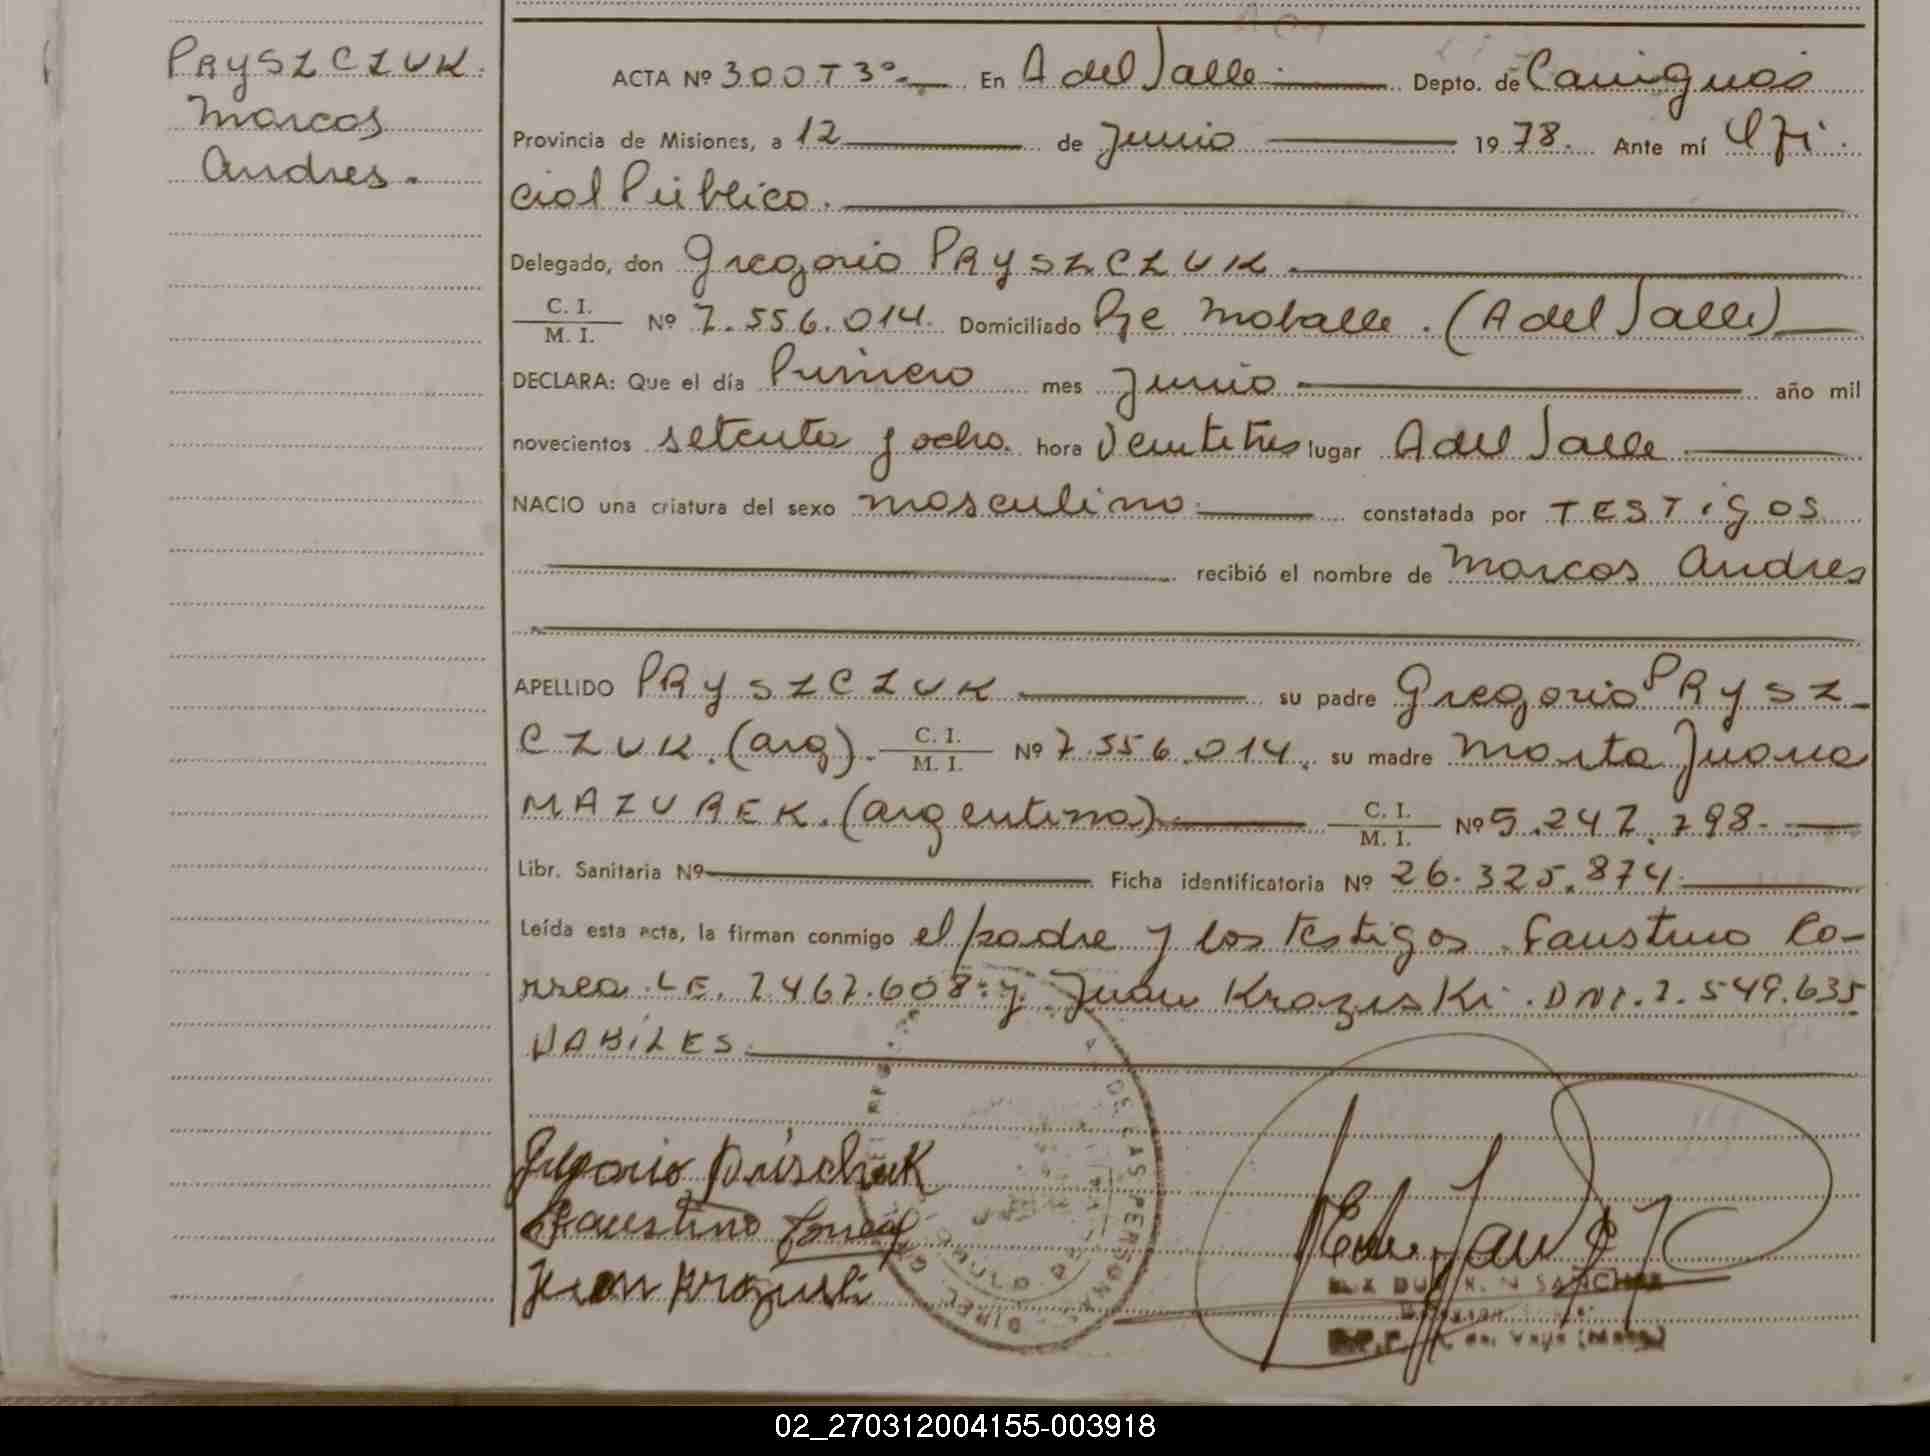 PRYSZCZUK.
Marcos
Andres.
ACTA Nº 300 T 3º En A del Valle Depto. de Cainguas
Provincia de Misiones, a 12 de Junio 1978. Ante mí Ofi
cial Público.
Delegado, don Gregorio PRYSZCZUK.
C. I.
M. I. Nº 7.556.014. Domiciliado Pje Moballe. (A del Valle)
DECLARA: Que el día Primero mes Junio año mil
novecientos setenta y ocho. hora Veintitres lugar A del Valle
NACIO una criatura del sexo masculino. constatada por TESTIGOS
recibió el nombre de Marcos Andres
APELLIDO PRYSZCZUK su padre Gregorio PRYSZ-
CZUK. (arg). C. I. M. I. Nº 7.556.014. su madre Marta Juana
MAZUREK. (argentina) C. I. M. I. Nº 5.247.298.
Libr. Sanitaria Nº Ficha identificatoria Nº 26.325.874.
Leída esta acta, la firman conmigo el padre y los testigos Faustino Co-
rrea LE. 7467.608. y Juan Krazuski. DNI. 7.549.635
HABILES.
Gregorio Prischuk
Faustino Correa
Juan
DE LAS PERSONAS
SANCHEZ
02_270312004155-003918